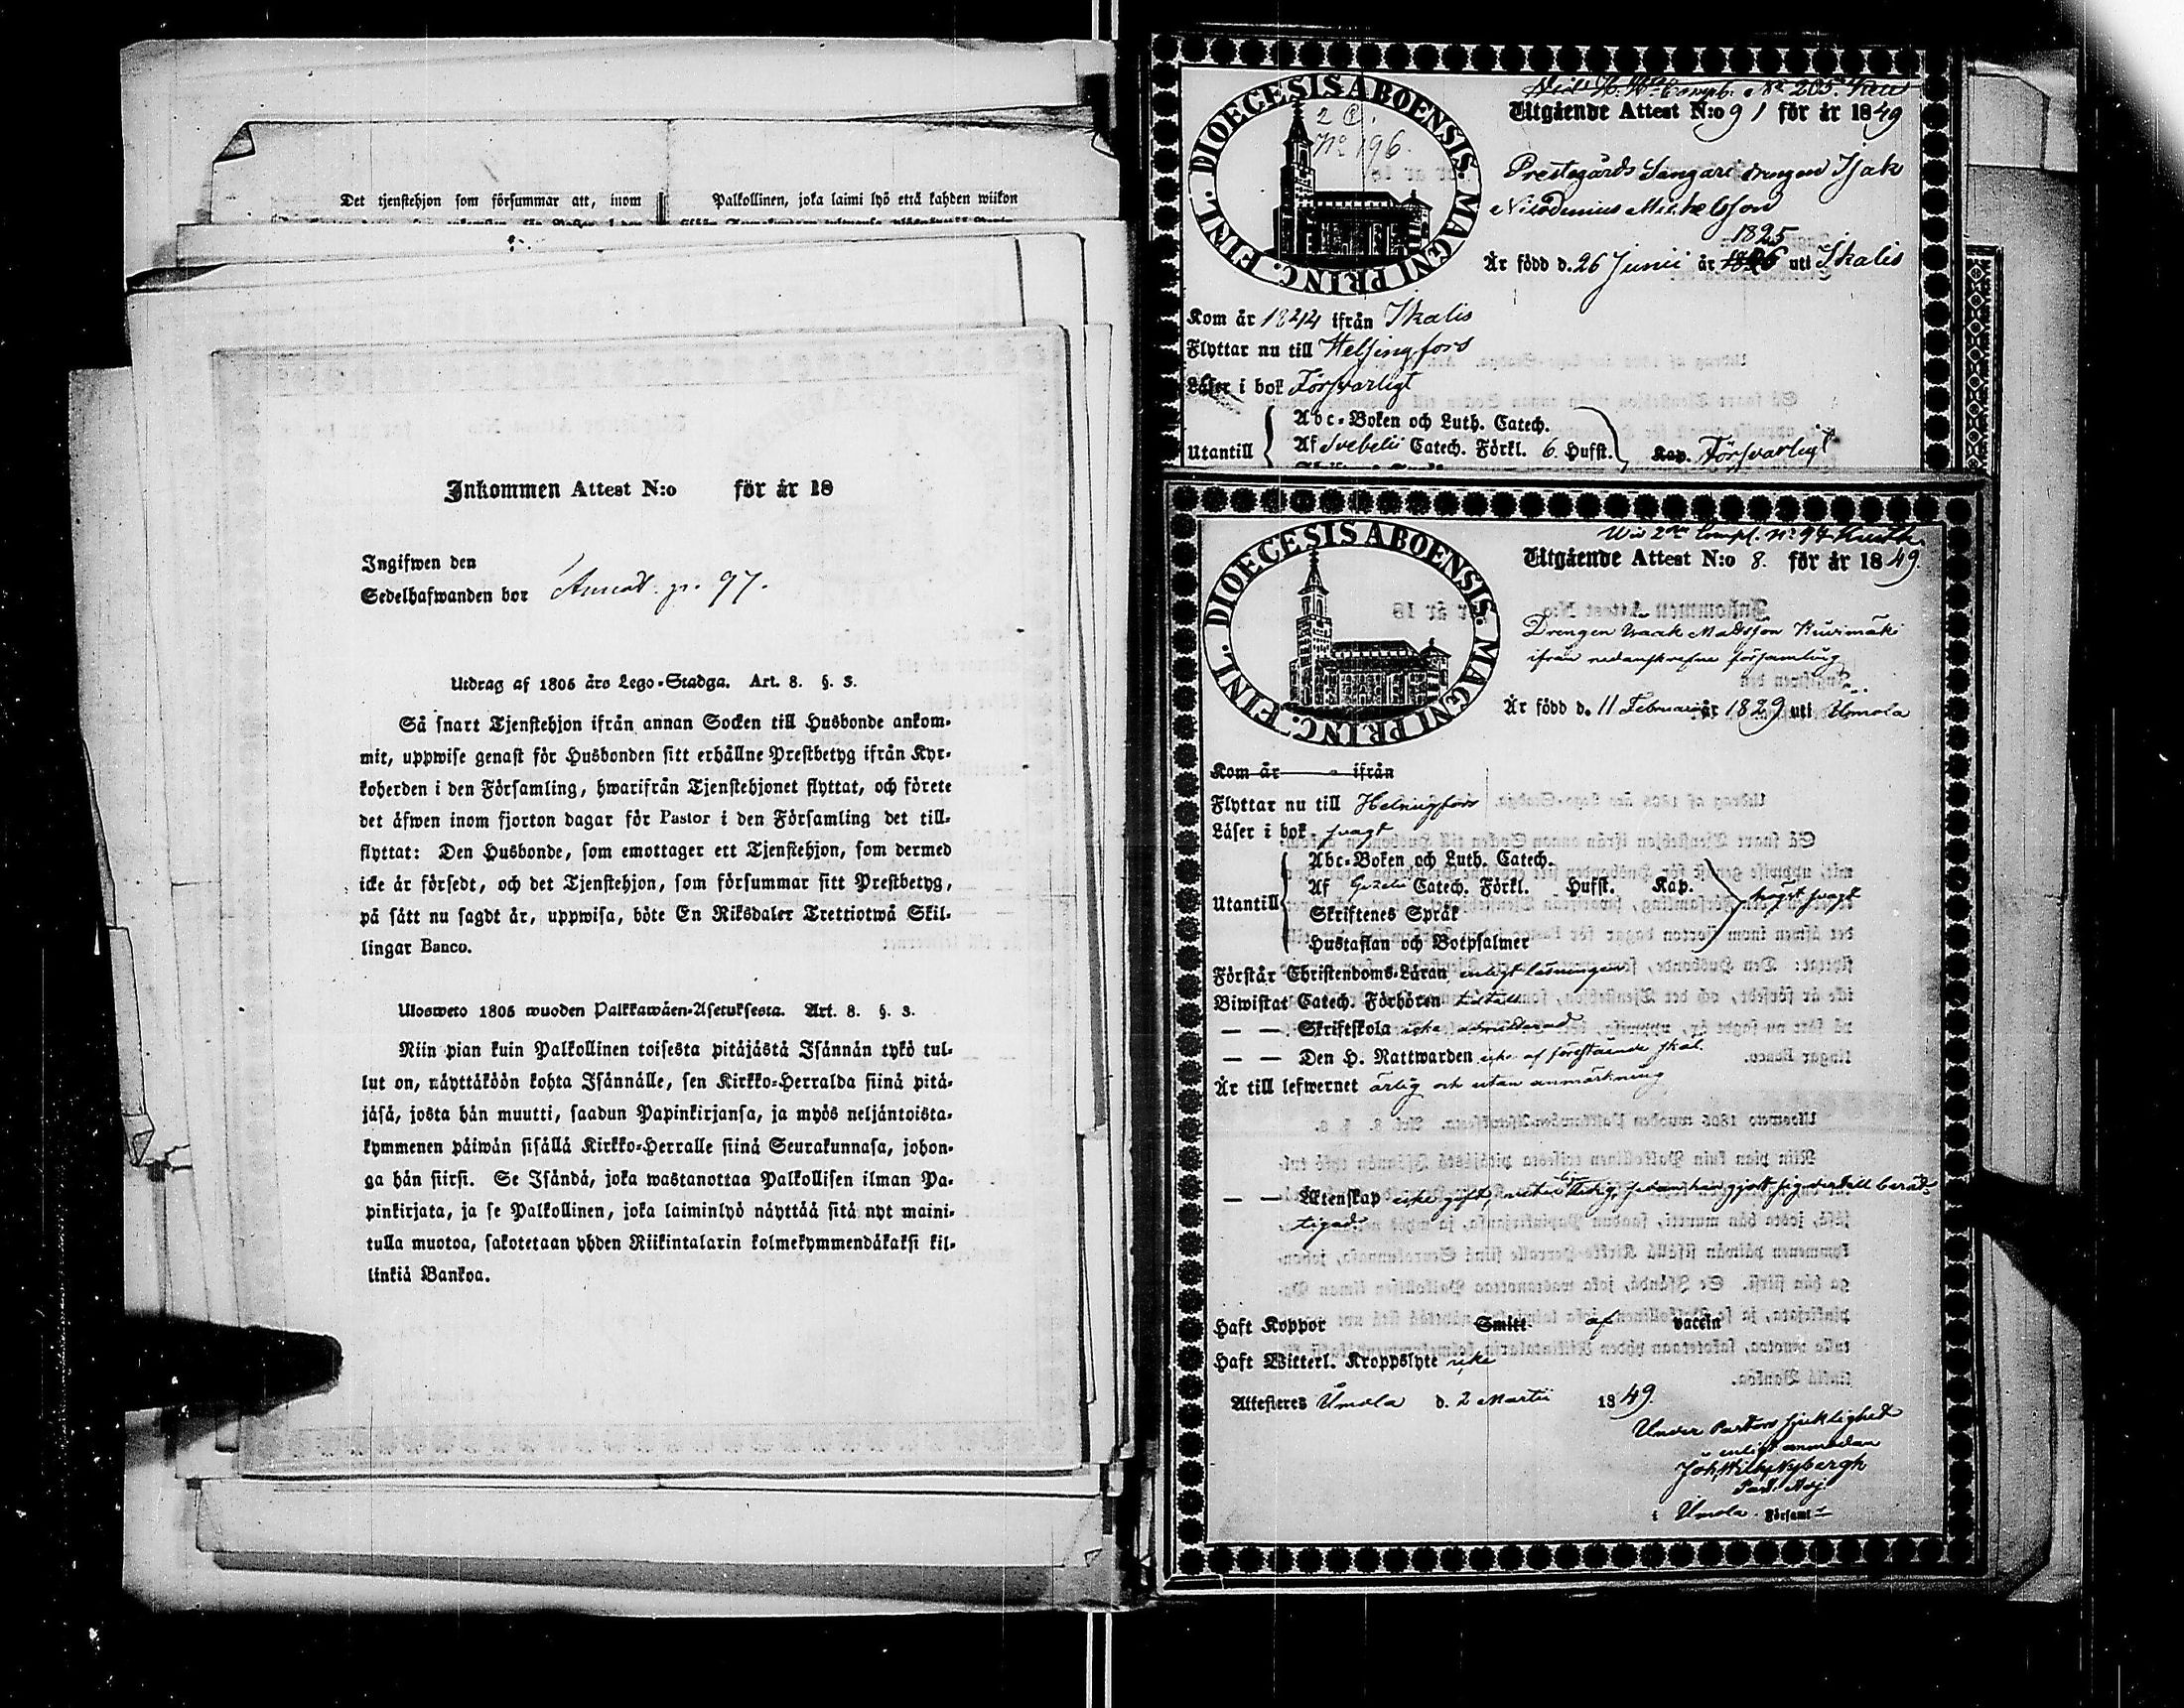 Det tjenstehjon som försummar att, inom
Palkollinen, joka laimi lyö että kahden wiikon
Inkommen Attest N:o för år 18
Ingifwen den
Sedelhafwanden bor Annot. p. 97.
Utdrag af 1805 års Lego-Stadga. Art. 8. §. 3.
Så snart Tjenstehjon ifrån annan Socken till Husbonde ankom-
mit, uppwise genast för Husbonden sitt erhållne Prestbetyg ifrån Kyr-
koherden i den Församling, hwarifrån Tjenstehjonet flyttat, och förete
det äfwen inom fjorton dagar för Pastor i den Församling det till-
flyttat: Den Husbonde, som emottager ett Tjenstehjon, som dermed
icke är försedt, och det Tjenstehjon, som försummar sitt Prestbetyg,
på sätt nu sagdt är, uppwisa, böte En Riksdaler Trettiotwå Skil-
lingar Banco.
Ulosweto 1805 wuoden Palkkawäen-Asetuksesta. Art. 8. §. 3.
Niin pian kuin Palkollinen toisesta pitäjästä Isännän tykö tul-
lut on, näyttäköön kohta Isännälle, sen Kirkko-Herralda siinä pitä-
jäsä, josta hän muutti, saadun Papinkirjansa, ja myös neljäntoista-
kymmenen päiwän sisällä Kirkko-Herralle siinä Seurakunnasa, johon-
ga hän siirsi. Se Isändä, joka wastanottaa Palkollisen ilman Pa-
pinkirjata, ja se Palkollinen, joka laiminlyö näyttää sitä nyt maini-
tulla muotoa, sakotetaan yhden Riikintalarin kolmekymmendäkaksi kil-
linkiä Bankoa.
DIOECESIS ABOENSIS. MAGNI PRINC. FINL.
2 C.
No 196.
No 205.
Utgående Attest N:o 91 för år 1849
Prestegårds Sångare drengen Isak
Nicodemus Michelsson
1825
Är född d. 26 Junii år 1826 uti Ikalis
Kom år 1844 ifrån Ikalis
Flyttar nu till Helsingfors
Läser i bok Försvarligt
Utantill
Abc-Boken och Luth. Catech.
Af Svebelii Catech. Förkl. 6. Hufst. Kap. Försvarligt
DIOECESIS ABOENSIS. MAGNI PRINC. FINL.
Wid 2dra Comp. No 97
Utgående Attest N:o 8. för år 1849.
Drengen Isaak Mattsson Kiurimäki
ifrån nedanskrefne församling
Är född d. 11 Februarii år 1829 uti Umola
Kom år ifrån
Flyttar nu till Helsingfors
Läser i bok svagt
Utantill
Abc-Boken och Luth. Catech.
Af Gezelii Catech. Förkl. Hufst. Kap. högst svagt
Skriftenes Språk
Hustaflan och Botpsalmer
Förstår Christendoms-Läran enligt läsningen
Biwistat Catech. Förhören
— — Skriftskola icke admitterad
— — Den H. Nattwarden icke af förestående skäl.
Är till lefwernet ärlig och utan anmärkning
— — Äktenskap icke gift, ledig, sedan han gjort sig dertill berät-
tigad
Haft Koppor Smitt. af vaccin
Haft Witterl. Kroppslyte icke
Attesteres Umola d. 2 Martii 1849.
Under Pastors sjuklighet
enligt anmodan
Joh. Wilh. Nybergh
Past. Adj.
i Umola Församl.